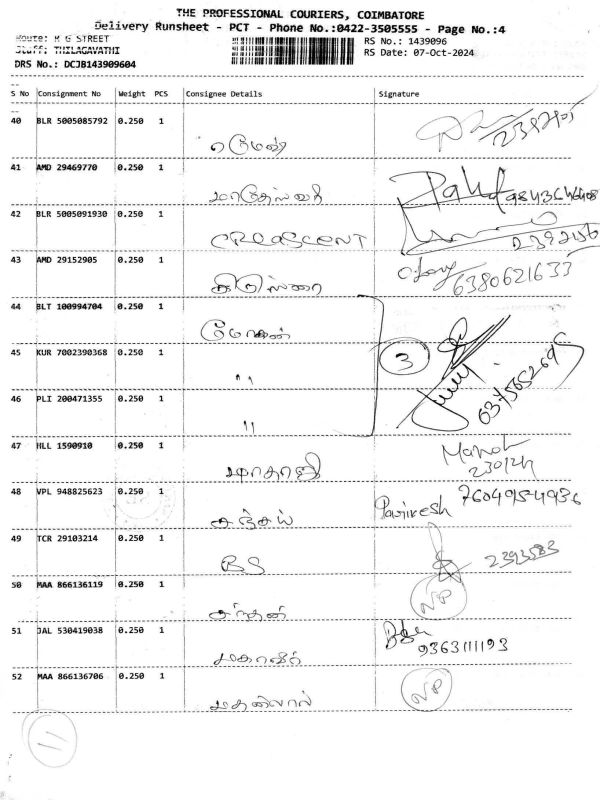 THE PROFESSIONAL COURIERS, COIMBATORE
Delivery Runsheet - PCT - Phone No.:0422-3505555 - Page No.:4
Route: R G STREET
Staff: THILAGAVATHI
DRS No.: DCJB143909604
RS No.: 1439096
RS Date: 07-Oct-2024
S No Consignment No Weight PCS Consignee Details Signature
40 BLR 5005085792 0.250 1 ரமேஷ்
41 AMD 29469770 0.250 1
42 BLR 5005091930 0.250 1 CRESCENT
43 AMD 29152905 0.250 1 6380621633
44 BLT 100994704 0.250 1 மோகன்
45 KUR 7002390368 0.250 1 " 3
46 PLI 200471355 0.250 1 "
47 HLL 1590910 0.250 1 Manoh
48 VPL 948825623 0.250 1 சஞ்சய்
49 TCR 29103214 0.250 1 BS 2393583
50 MAA 866136119 0.250 1 NP
51 JAL 530419038 0.250 1 மகாவீர் 9363111193
52 MAA 866136706 0.250 1 மதன்லால் NP
11